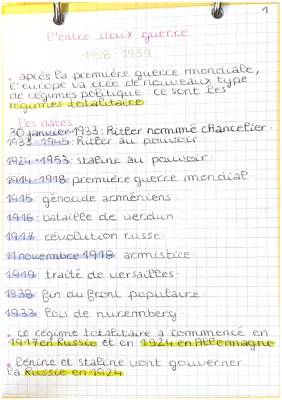 1
l'entre deux guerre
1918-1939
• après la première guerre mondiale,
l'europe va crée de nouveaux type
de régimes politique ce sont les
régimes totalitaire
Les dates
30 janvier 1933: Hitler nommé chancelier.
1933-1945: Hitler au pouvoir
1924-1953: staline au pouvoir.
1914-1918: première guerre mondial.
1915: génocide arméniens.
1916: bataille de verdun
1917: révolution russe.
11 novembre 1918: armistice.
1919: traité de versailles.
1938: fin du front populaire.
1933: lois de nuremberg.
• ce régime totalitaire a commencé en
1917 en Russie et en 1924 en Allemagne
• Lénine et staline vont gouverner
la Russie en 1924